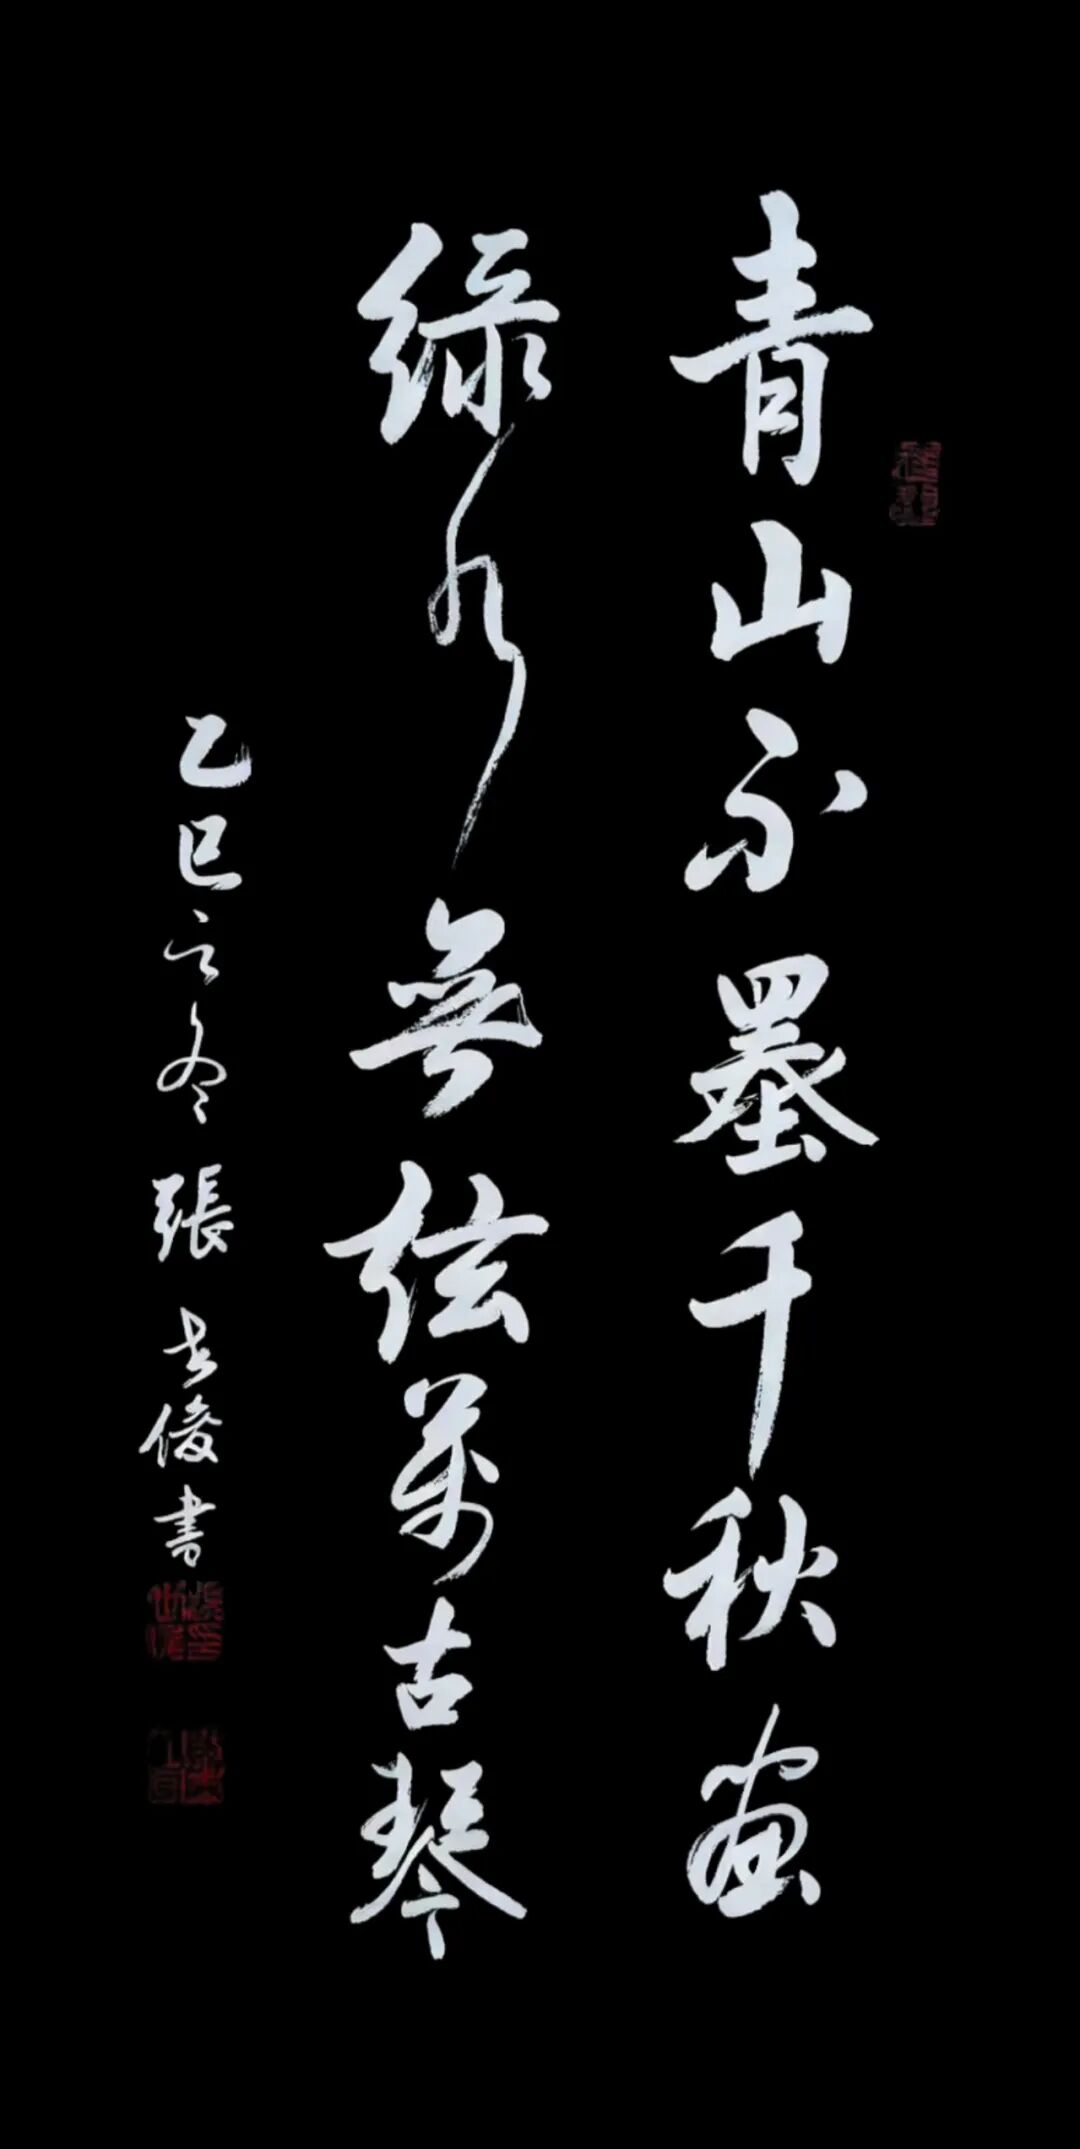 青山不墨千秋畫
绿水無弦萬古琴
乙巳之冬 張世俊書